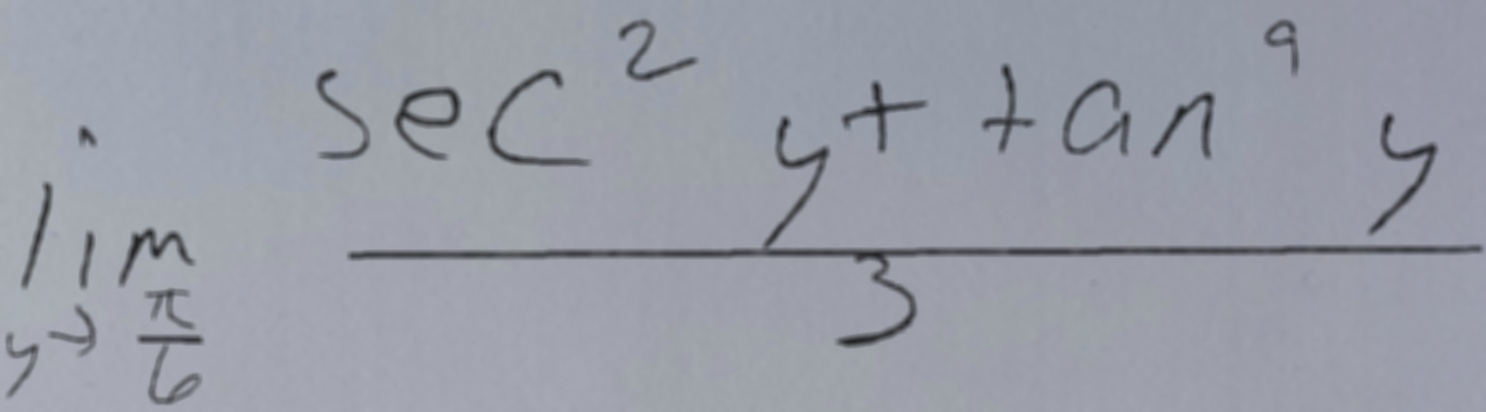 \lim_{y \to \frac{\pi}{6}} \frac{\sec^2 y + \tan^9 y}{3}